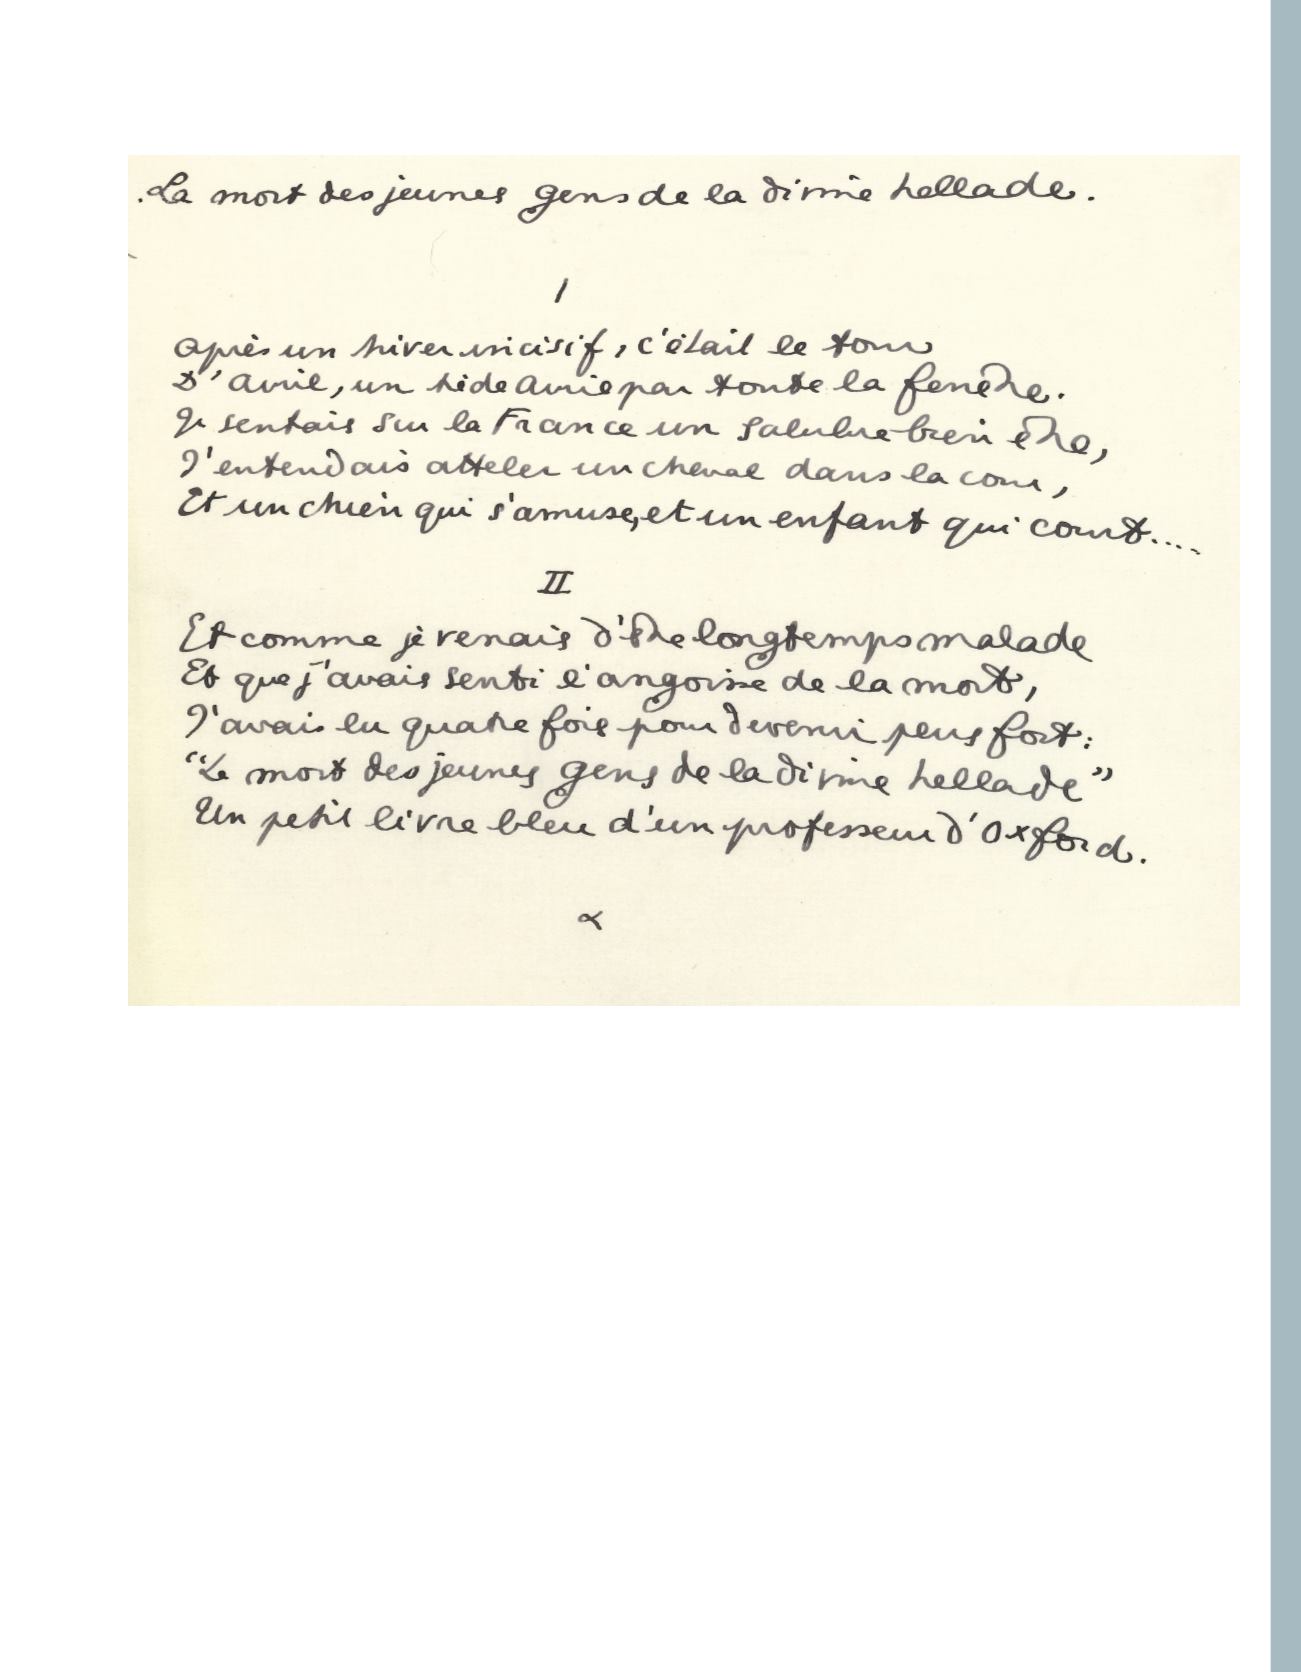 La mort des jeunes gens de la divine hellade.
I
après un hiver incisif, c'était le tour
D'avril, un tiède avril par toute la fenêtre.
Je sentais sur la France un salubre bien être,
J'entendais atteler un cheval dans la cour,
Et un chien qui s'amuse, et un enfant qui court....
II
Et comme je venais d'être longtemps malade
Et que j'avais senti l'angoisse de la mort,
J'avais lu quatre fois pour devenir plus fort:
"La mort des jeunes gens de la divine hellade"
Un petit livre bleu d'un professeur d'Oxford.